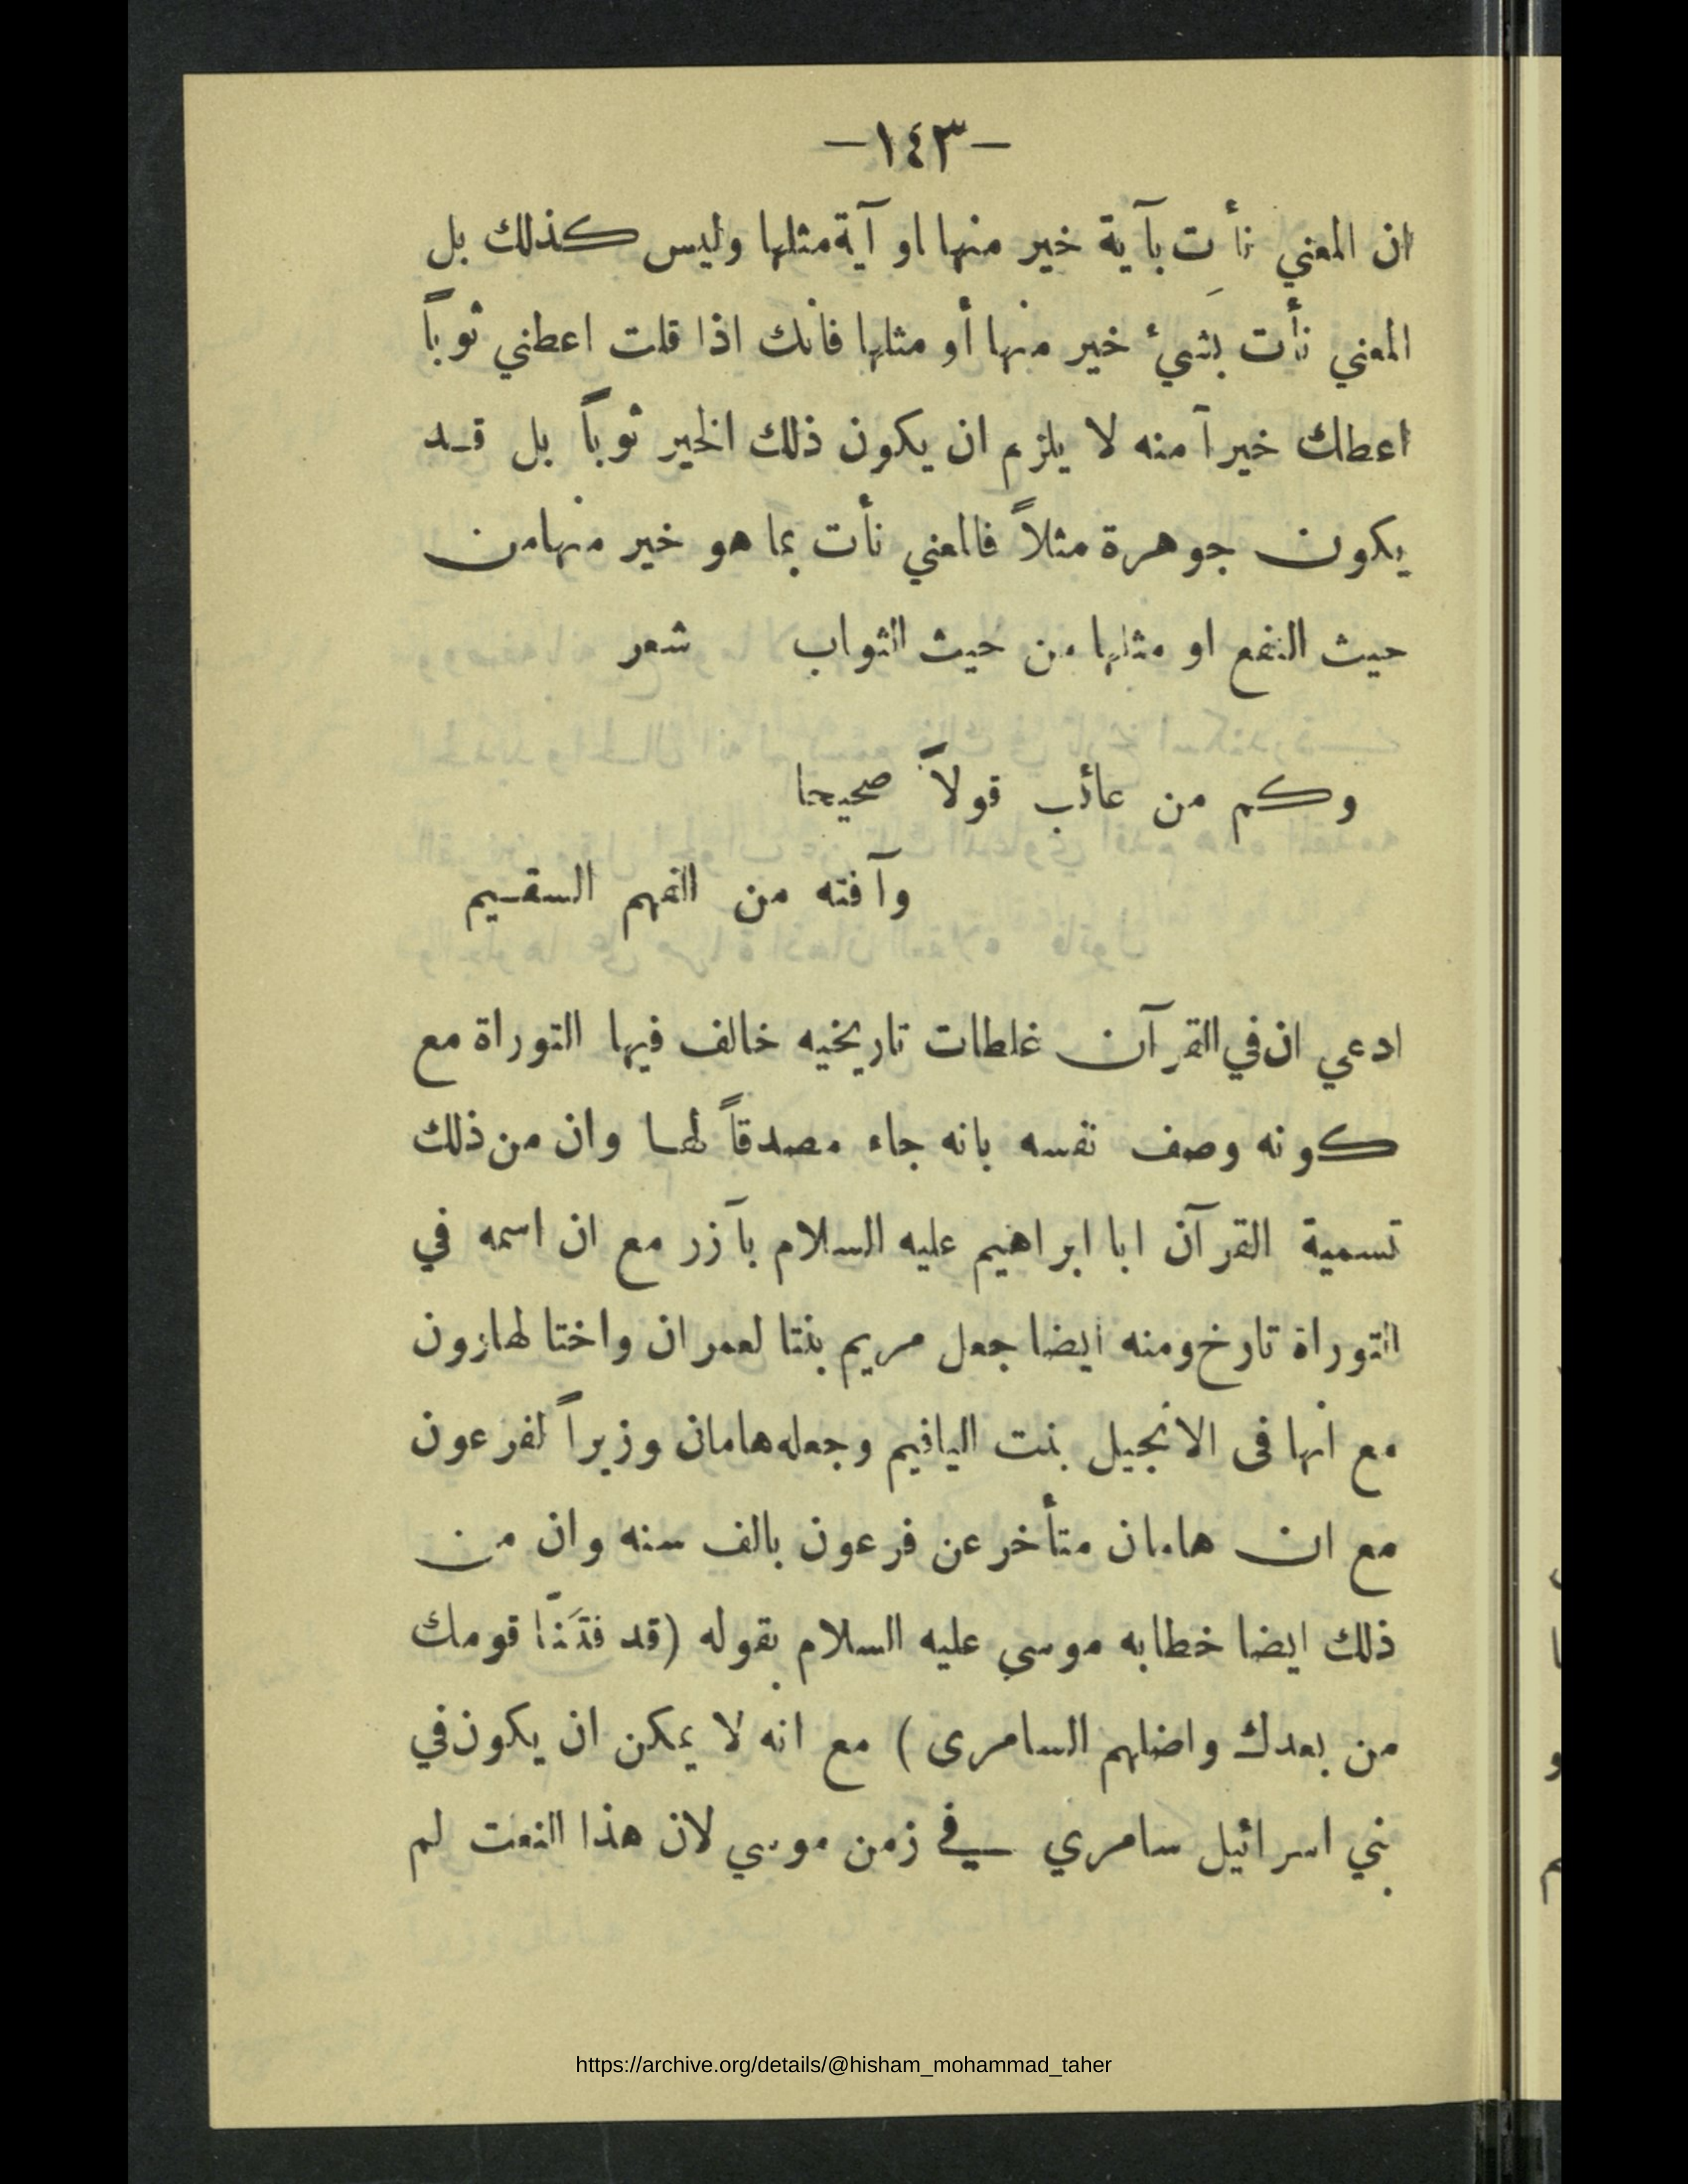 —١٤٣—
ان المعني نأت بآية خير منها او آية مثلها وليس كذلك بل
المعني نأت بشيء خير منها أو مثلها فانك اذا قلت اعطني ثوباً
اعطك خيراً منه لا يلزم ان يكون ذلك الخير ثوباً بل قد
يكون جوهرة مثلاً فالمعني نأت بما هو خير منها من
حيث النفع او مثلها من حيث الثواب شعر
وكم من عائب قولاً صحيحا
وآفته من الفهم السقيم
ادعي ان في القرآن غلطات تاريخيه خالف فيها التوراة مع
كونه وصف نفسه بانه جاء مصدقاً لها وان من ذلك
تسمية القرآن ابا ابراهيم عليه السلام بآزر مع ان اسمه في
التوراة تارخ ومنه ايضا جعل مريم بنتا لعمران واختا لهارون
مع انها فى الانجيل بنت الياقيم وجعله هامان وزيراً لفرعون
مع ان هامان متأخر عن فرعون بالف سنه وان من
ذلك ايضا خطابه موسي عليه السلام بقوله (قد فتَنّا قومك
من بعدك واضلهم السامرى) مع انه لا يمكن ان يكون في
بني اسرائيل سامري في زمن موسي لان هذا النعت لم
https://archive.org/details/@hisham_mohammad_taher